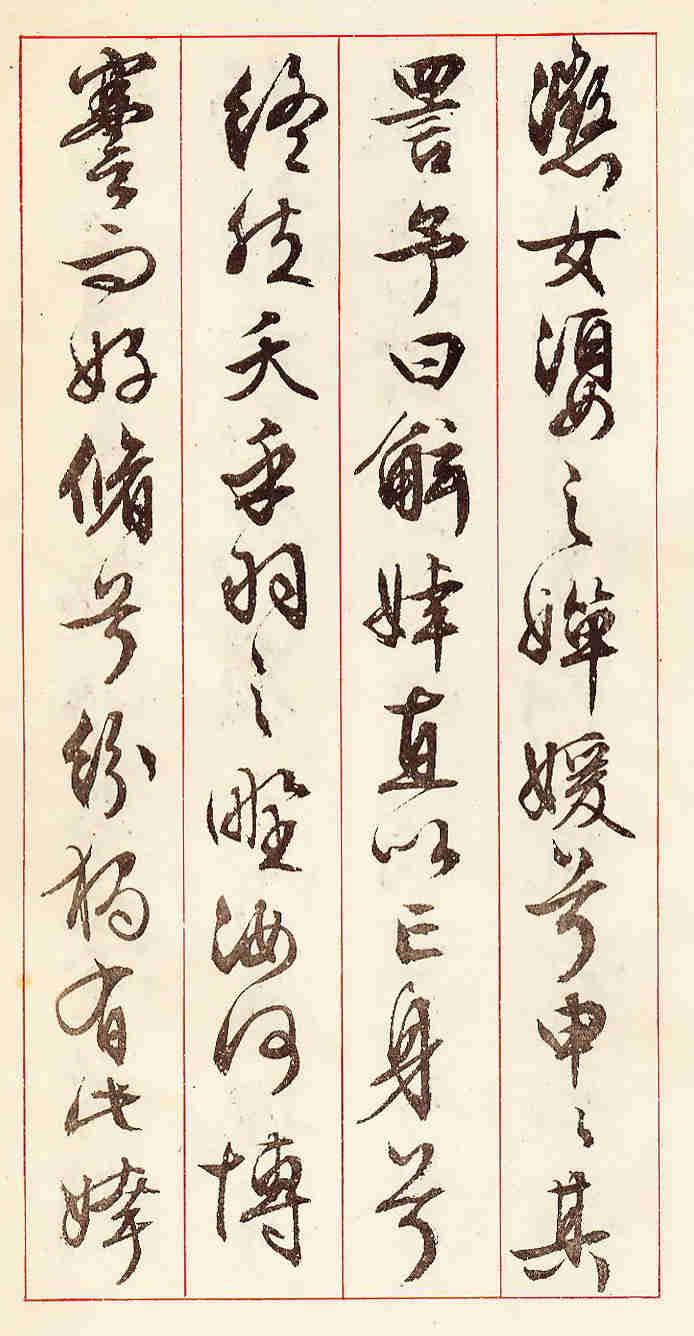 懲女嬃之嬋媛兮申〻其
詈予曰鮌婞直以亡身兮
終然夭乎羽之野汝何博
謇而好脩兮紛獨有此姱